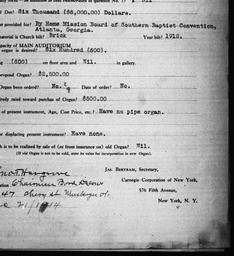 Debt? Six Thousand ($6,000.00) Dollars.
provided for? By Home Mission Board of Southern Baptist Convention,
Atlanta, Georgia.
Material is Church built? Brick Year built? 1912.
capacity of MAIN AUDITORIUM
organ is desired? Six Hundred (600).
(600) on floor area and Nil. in gallery.
proposed Organ? $2,500.00
Organ been ordered? No. Date of order? No.
already raised toward purchase of Organ? $500.00
of present instrument, Age, Cost Price, etc.? Have no pipe organ.
for displacing present instrument? Have none.
is to be realized by sale of (or from insurance on) old Organ? Nil.
(If old Organ is not to be sold, state its value for incorporation in new Organ)
JAS. BERTRAM, Secretary,
Carnegie Corporation of New York,
576 Fifth Avenue,
New York, N. Y.
Hargrove
Chairman
47 Cherry st Muskogee
21/1914